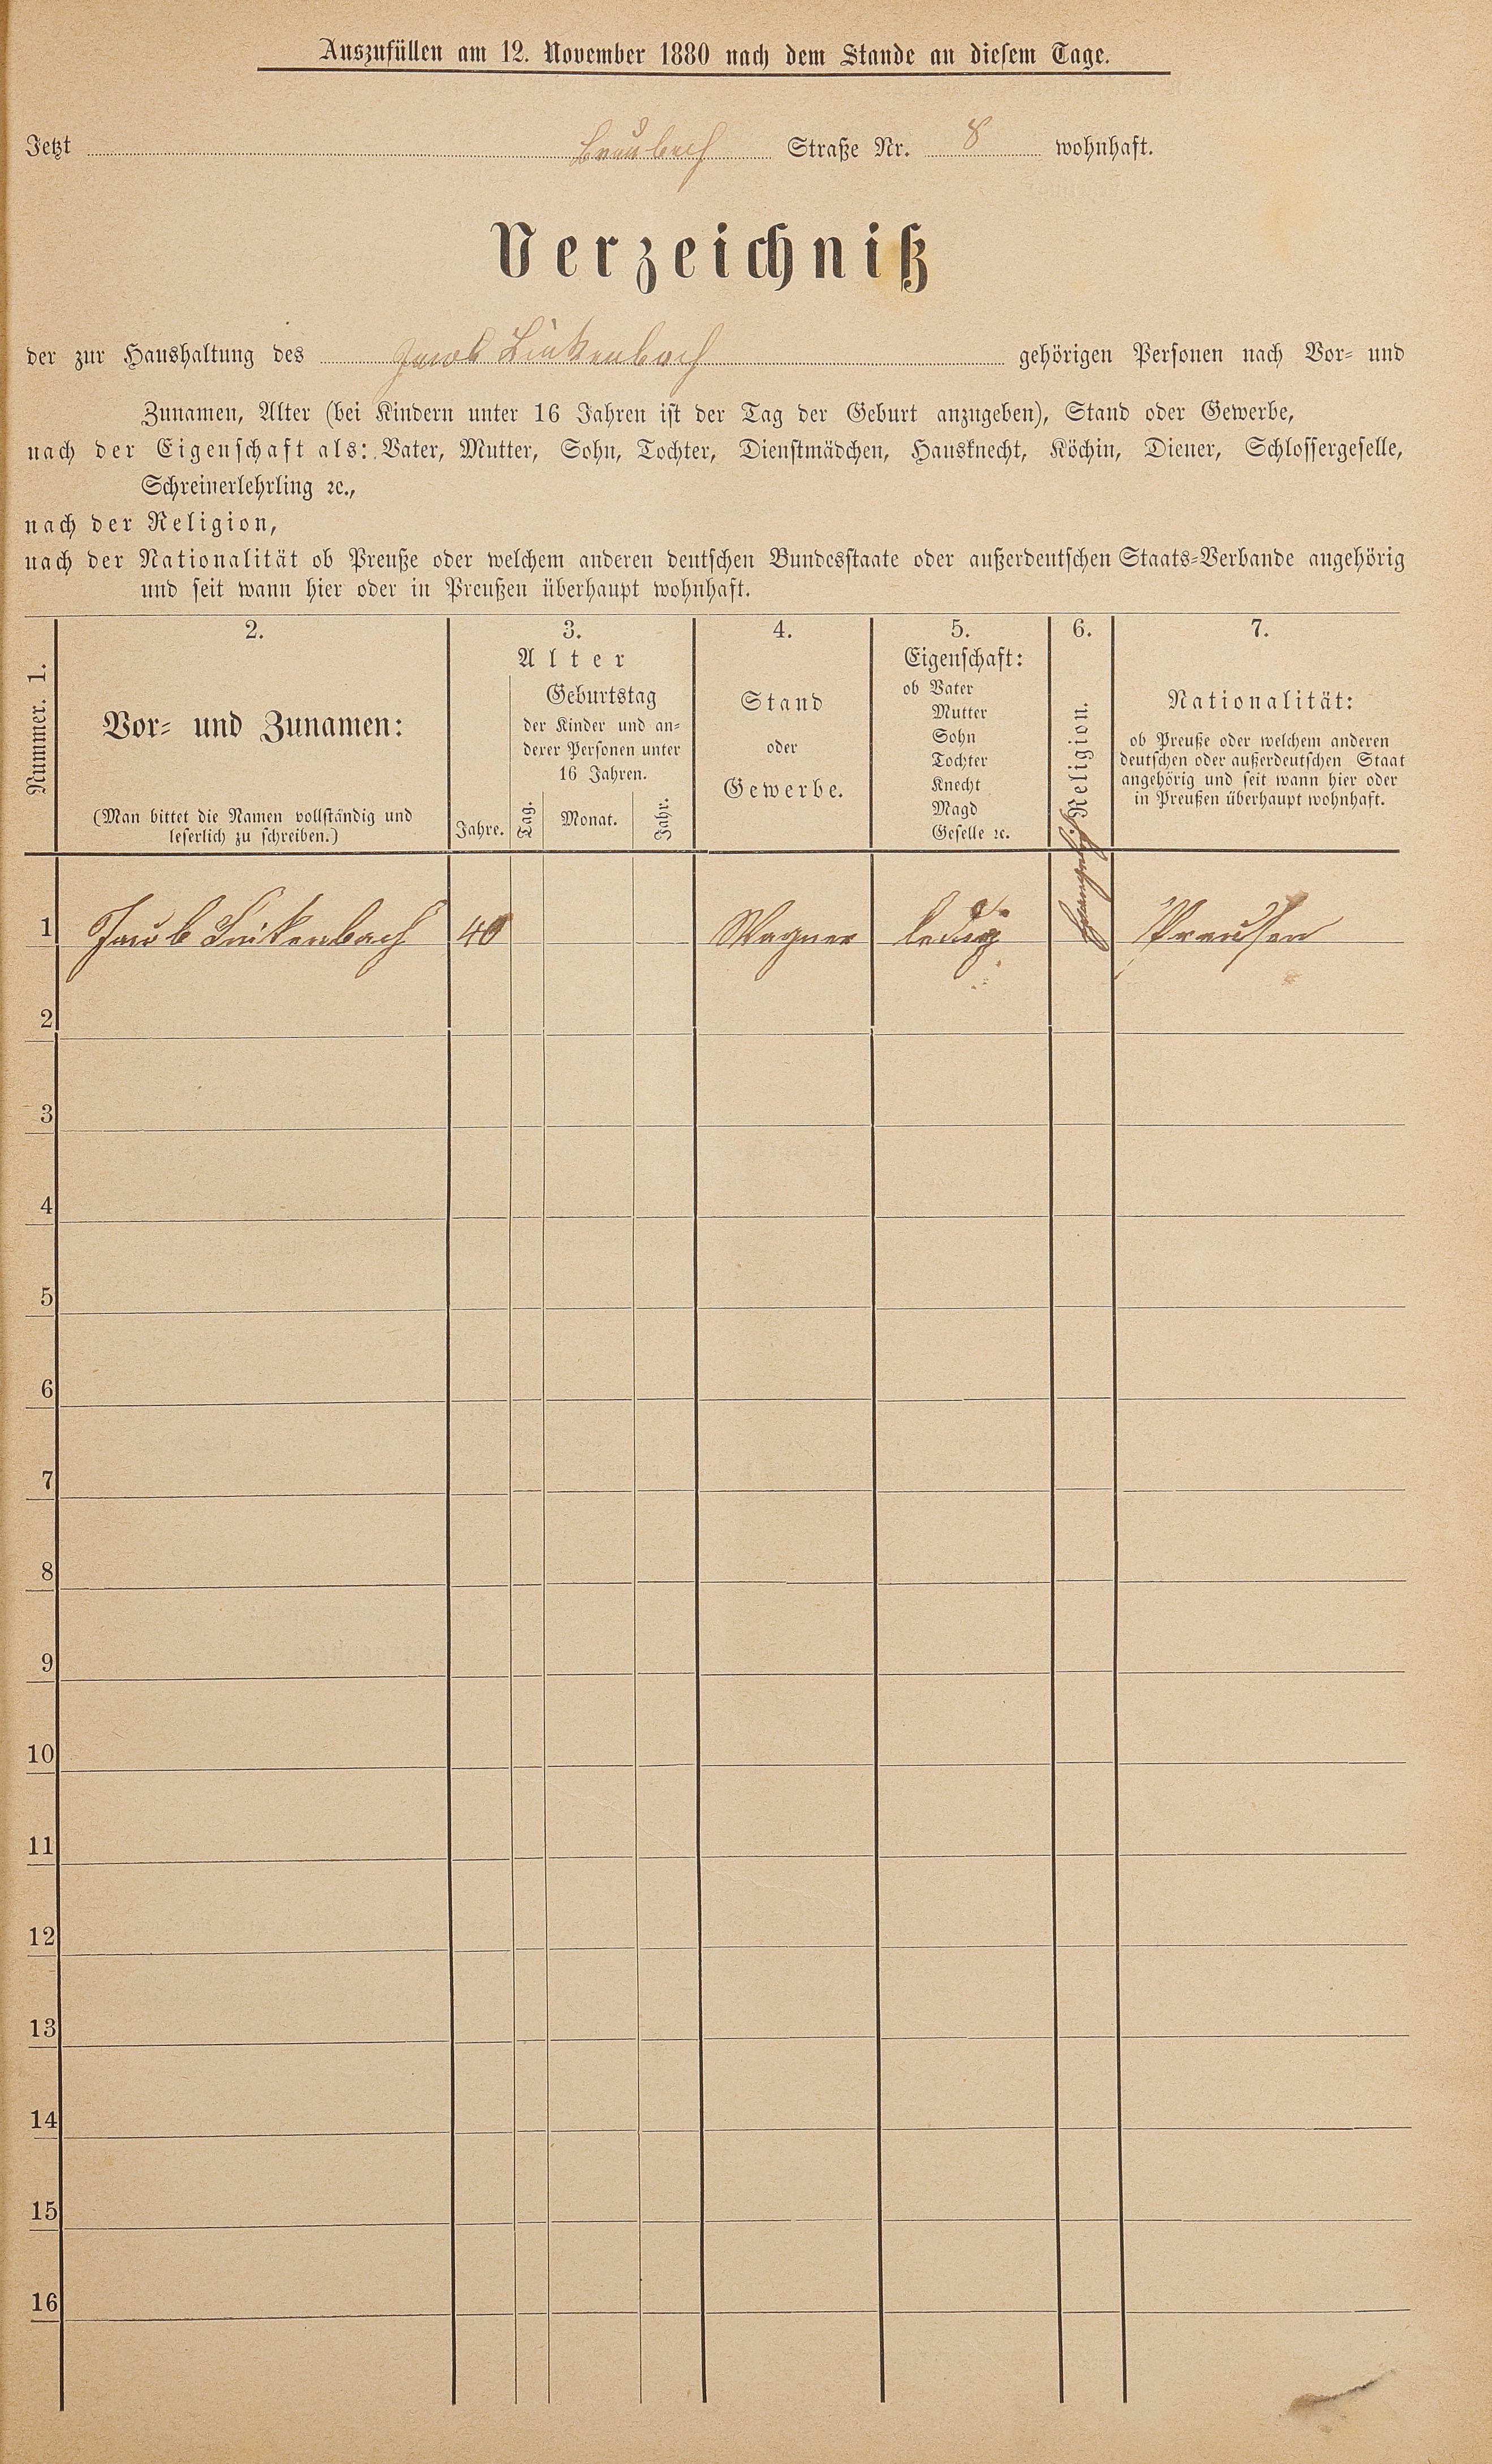 Auszufüllen am 12. November 1880 nach dem Stande an diesem Tage.
Jetzt Braubach Straße Nr. 8 wohnhaft.
Verzeichniß
der zur Haushaltung des Jacob Linkenbach gehörigen Personen nach Vor- und
Zunamen, Alter (bei Kindern unter 16 Jahren ist der Tag der Geburt anzugeben), Stand oder Gewerbe,
nach der Eigenschaft als: Vater, Mutter, Sohn, Tochter, Dienstmädchen, Hausknecht, Köchin, Diener, Schlossergeselle,
Schreinerlehrling ꝛc.,
nach der Religion,
nach der Nationalität ob Preuße oder welchem anderen deutschen Bundesstaate oder außerdeutschen Staats-Verbande angehörig
und seit wann hier oder in Preußen überhaupt wohnhaft.
Nummer. 1.
2.
Vor- und Zunamen:
(Man bittet die Namen vollständig und
leserlich zu schreiben.)
3.
Alter
Jahre.
Geburtstag
der Kinder und an-
derer Personen unter
16 Jahren.
Tag.
Monat.
Jahr.
4.
Stand
oder
Gewerbe.
5.
Eigenschaft:
ob Vater
Mutter
Sohn
Tochter
Knecht
Magd
Geselle ꝛc.
6.
Religion.
7.
Nationalität:
ob Preuße oder welchem anderen
deutschen oder außerdeutschen Staat
angehörig und seit wann hier oder
in Preußen überhaupt wohnhaft.
1 Jacob Linkenbach 40 Wagner ledig Preusen
2
3
4
5
6
7
8
9
10
11
12
13
14
15
16